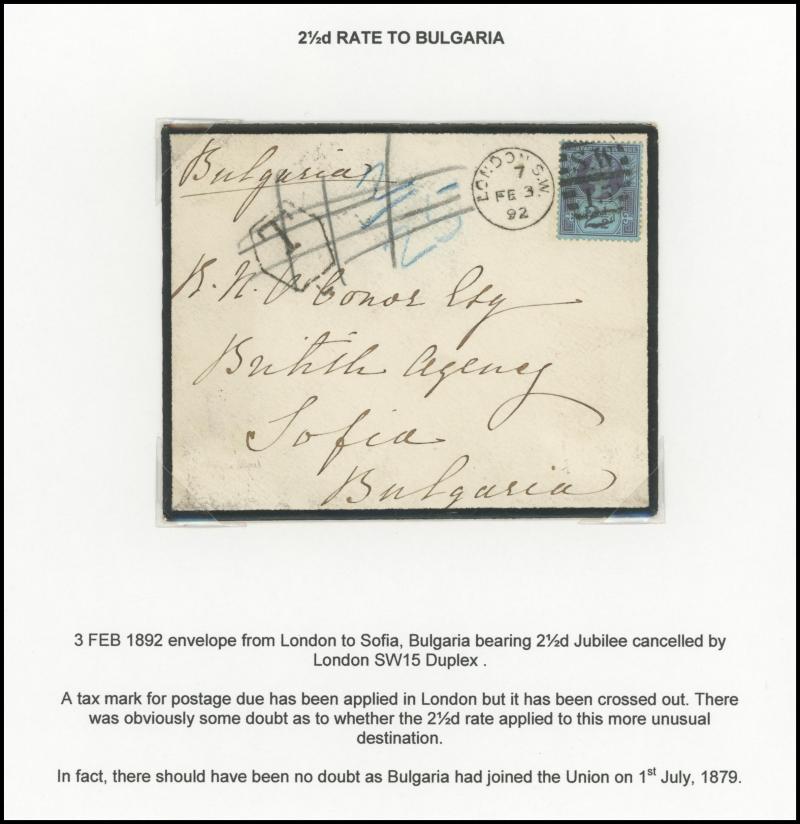 2½d RATE TO BULGARIA
Bulgaria
LONDON S.W.
7
FE 3
92
T
R. N. O'Conor Esq
British Agency
Sofia
Bulgaria
3 FEB 1892 envelope from London to Sofia, Bulgaria bearing 2½d Jubilee cancelled by
London SW15 Duplex .
A tax mark for postage due has been applied in London but it has been crossed out. There
was obviously some doubt as to whether the 2½d rate applied to this more unusual
destination.
In fact, there should have been no doubt as Bulgaria had joined the Union on 1st July, 1879.